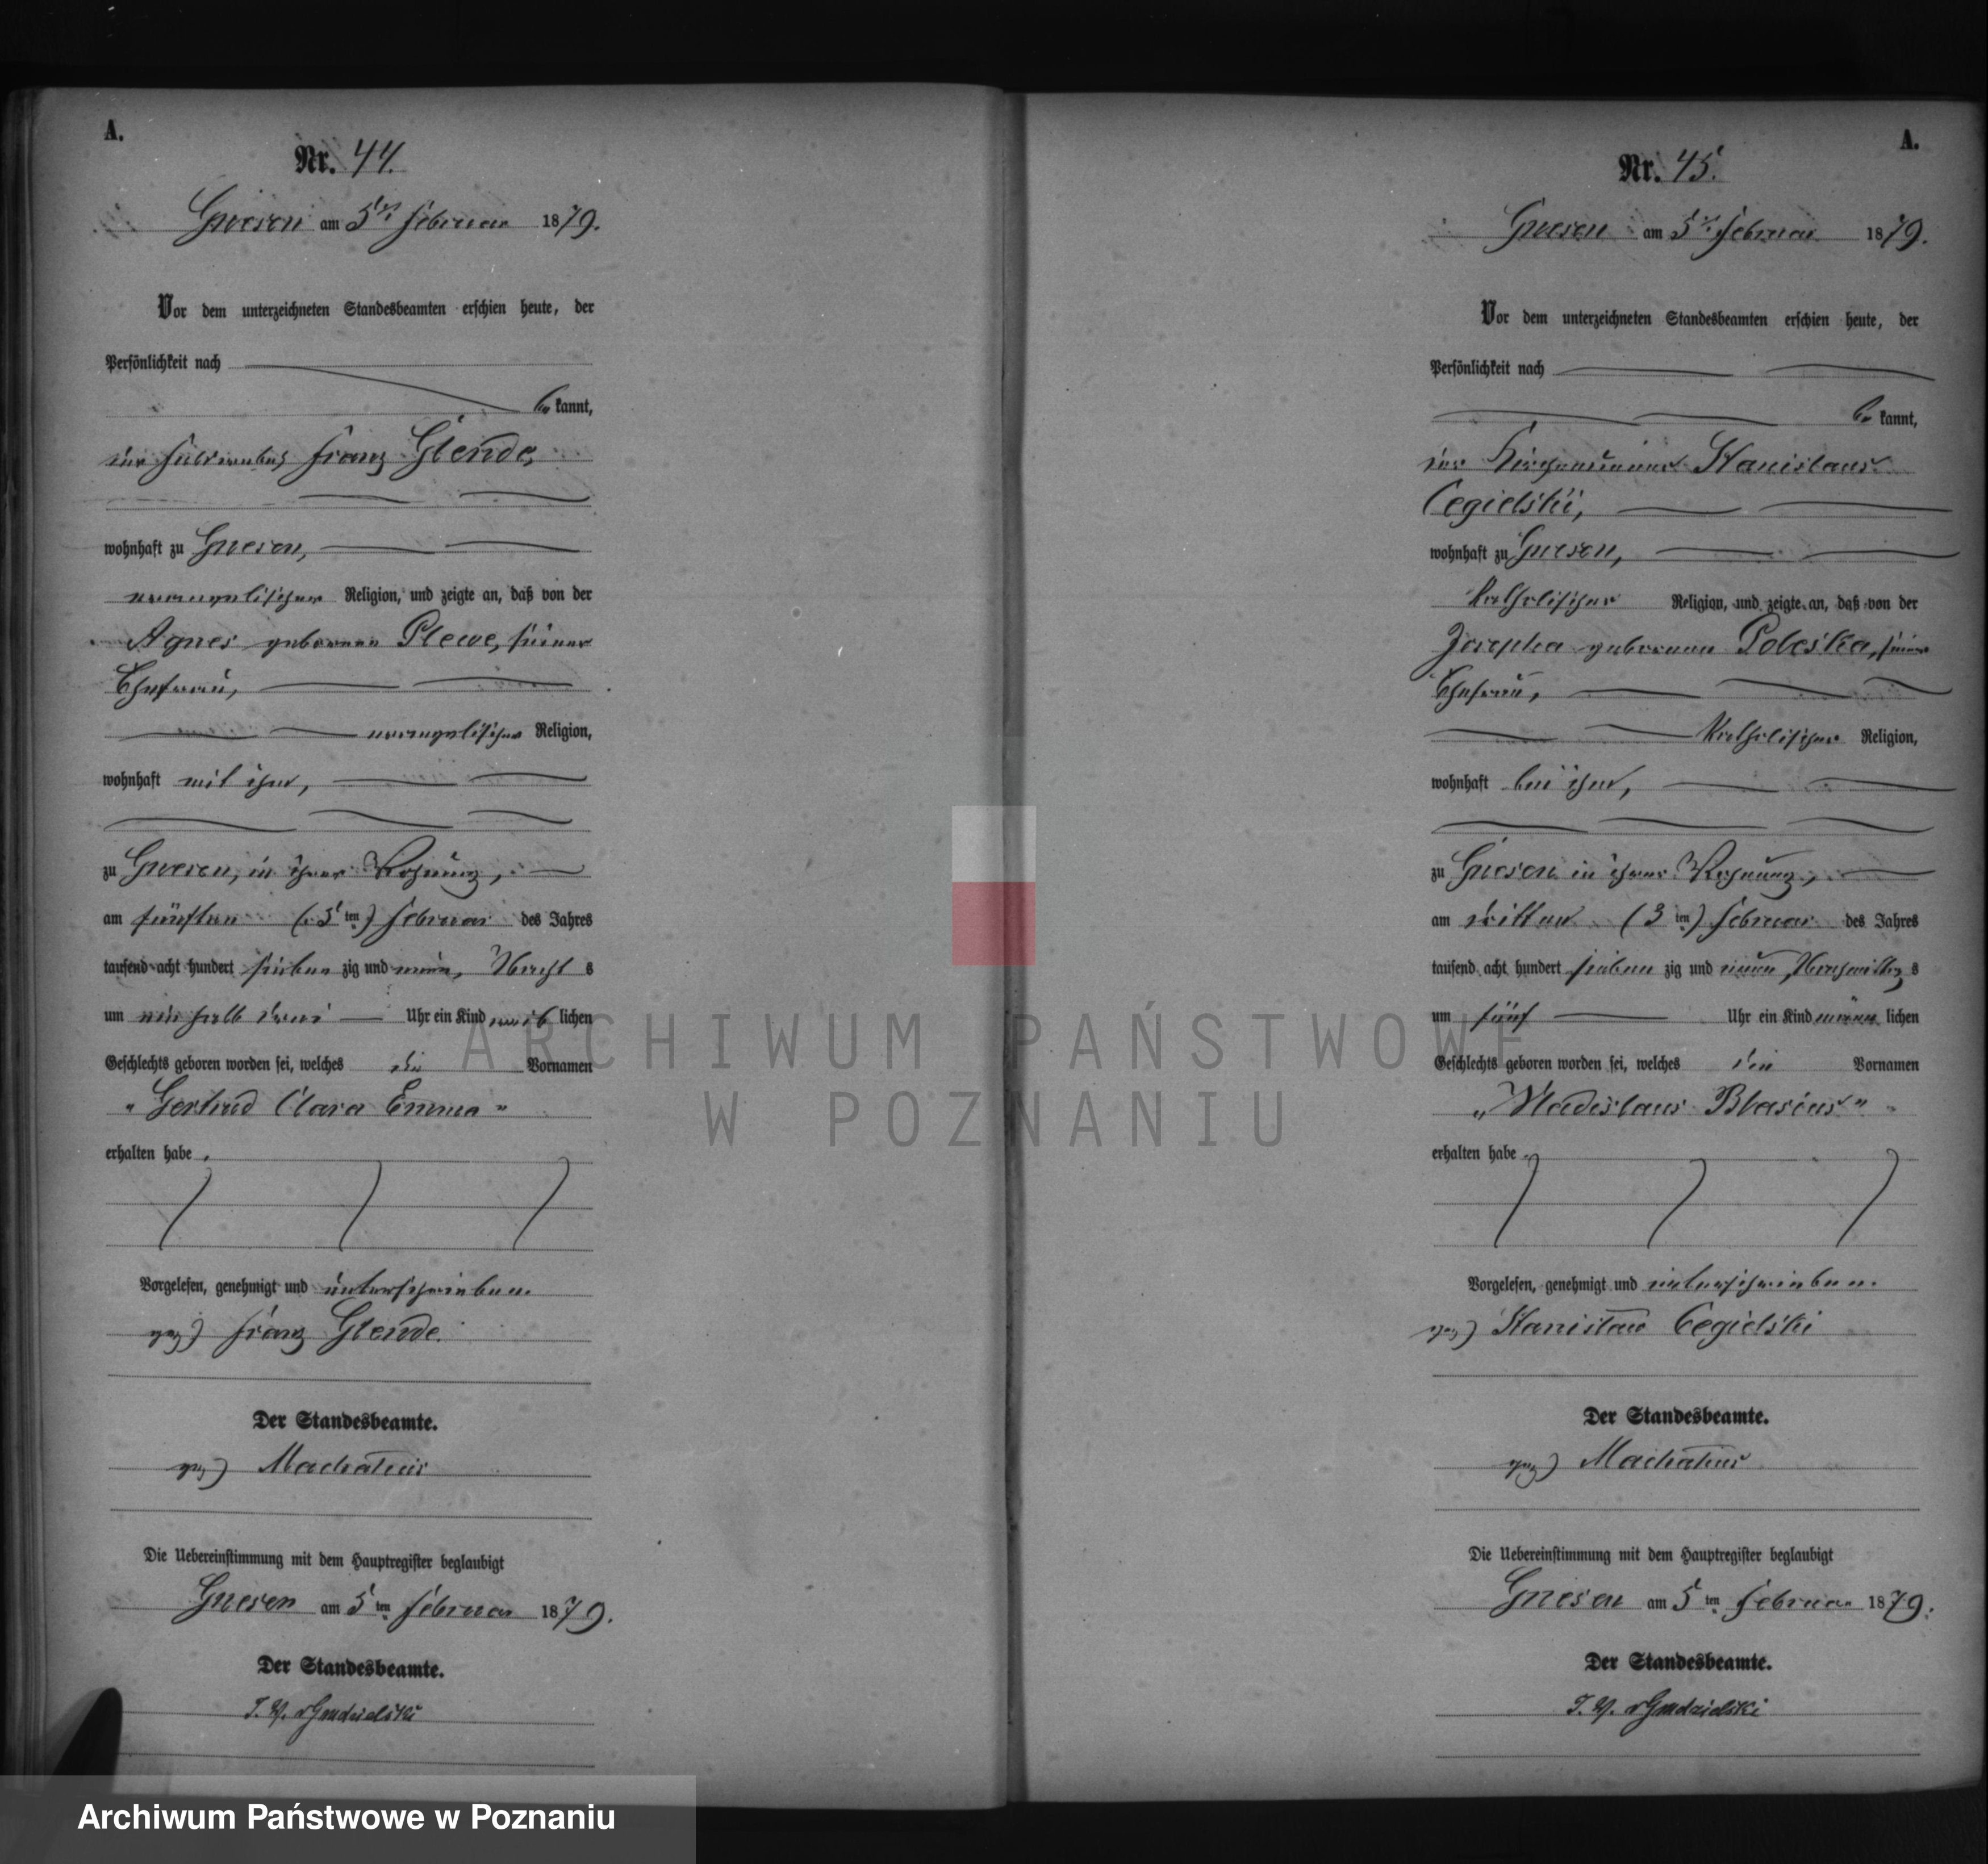 A.
Nr. 44.
Gnesen am 5ten Februar 1879.
Vor dem unterzeichneten Standesbeamten erschien heute, der
Persönlichkeit nach
be kannt,
der Franz Glende,
wohnhaft zu Gnesen,
evangelischer Religion, und zeigte an, daß von der
Agnes geborenen Plewe, seiner
Ehefrau,
evangelischer Religion,
wohnhaft mit ihm,
zu Gnesen, in ihrer Wohnung,
am fünften (5ten) Februar des Jahres
tausend acht hundert sieben zig und neun, Nacht s
um ein halb drei Uhr ein Kind weib lichen
Geschlechts geboren worden sei, welches die Vornamen
„Gertrud Clara Emma"
erhalten habe.
Vorgelesen, genehmigt und unterschrieben.
gez) Franz Glende.
Der Standesbeamte.
gez) Machatius
Die Uebereinstimmung mit dem Hauptregister beglaubigt
Gnesen am 5ten Februar 1879.
Der Standesbeamte.
Archiwum Państwowe w Poznaniu
A.
Nr. 45.
Gnesen am 5ten Februar 1879.
Vor dem unterzeichneten Standesbeamten erschien heute, der
Persönlichkeit nach
be kannt,
der Kirchendiener Stanislaus
Cegielski,
wohnhaft zu Gnesen,
katholischer Religion, und zeigte an, daß von der
Josepha geborenen Poleska, seiner
Ehefrau,
katholischer Religion,
wohnhaft bei ihm,
zu Gnesen in ihrer Wohnung,
am dritten (3ten) Februar des Jahres
tausend acht hundert sieben zig und neun, Nachmittag s
um fünf Uhr ein Kind männ lichen
Geschlechts geboren worden sei, welches die Vornamen
„Wladislaus Blasius"
erhalten habe.
Vorgelesen, genehmigt und unterschrieben.
gez) Stanislaus Cegielski
Der Standesbeamte.
gez) Machatius
Die Uebereinstimmung mit dem Hauptregister beglaubigt
Gnesen am 5ten Februar 1879.
Der Standesbeamte.
ARCHIWUM PAŃSTWOWE
W POZNANIU